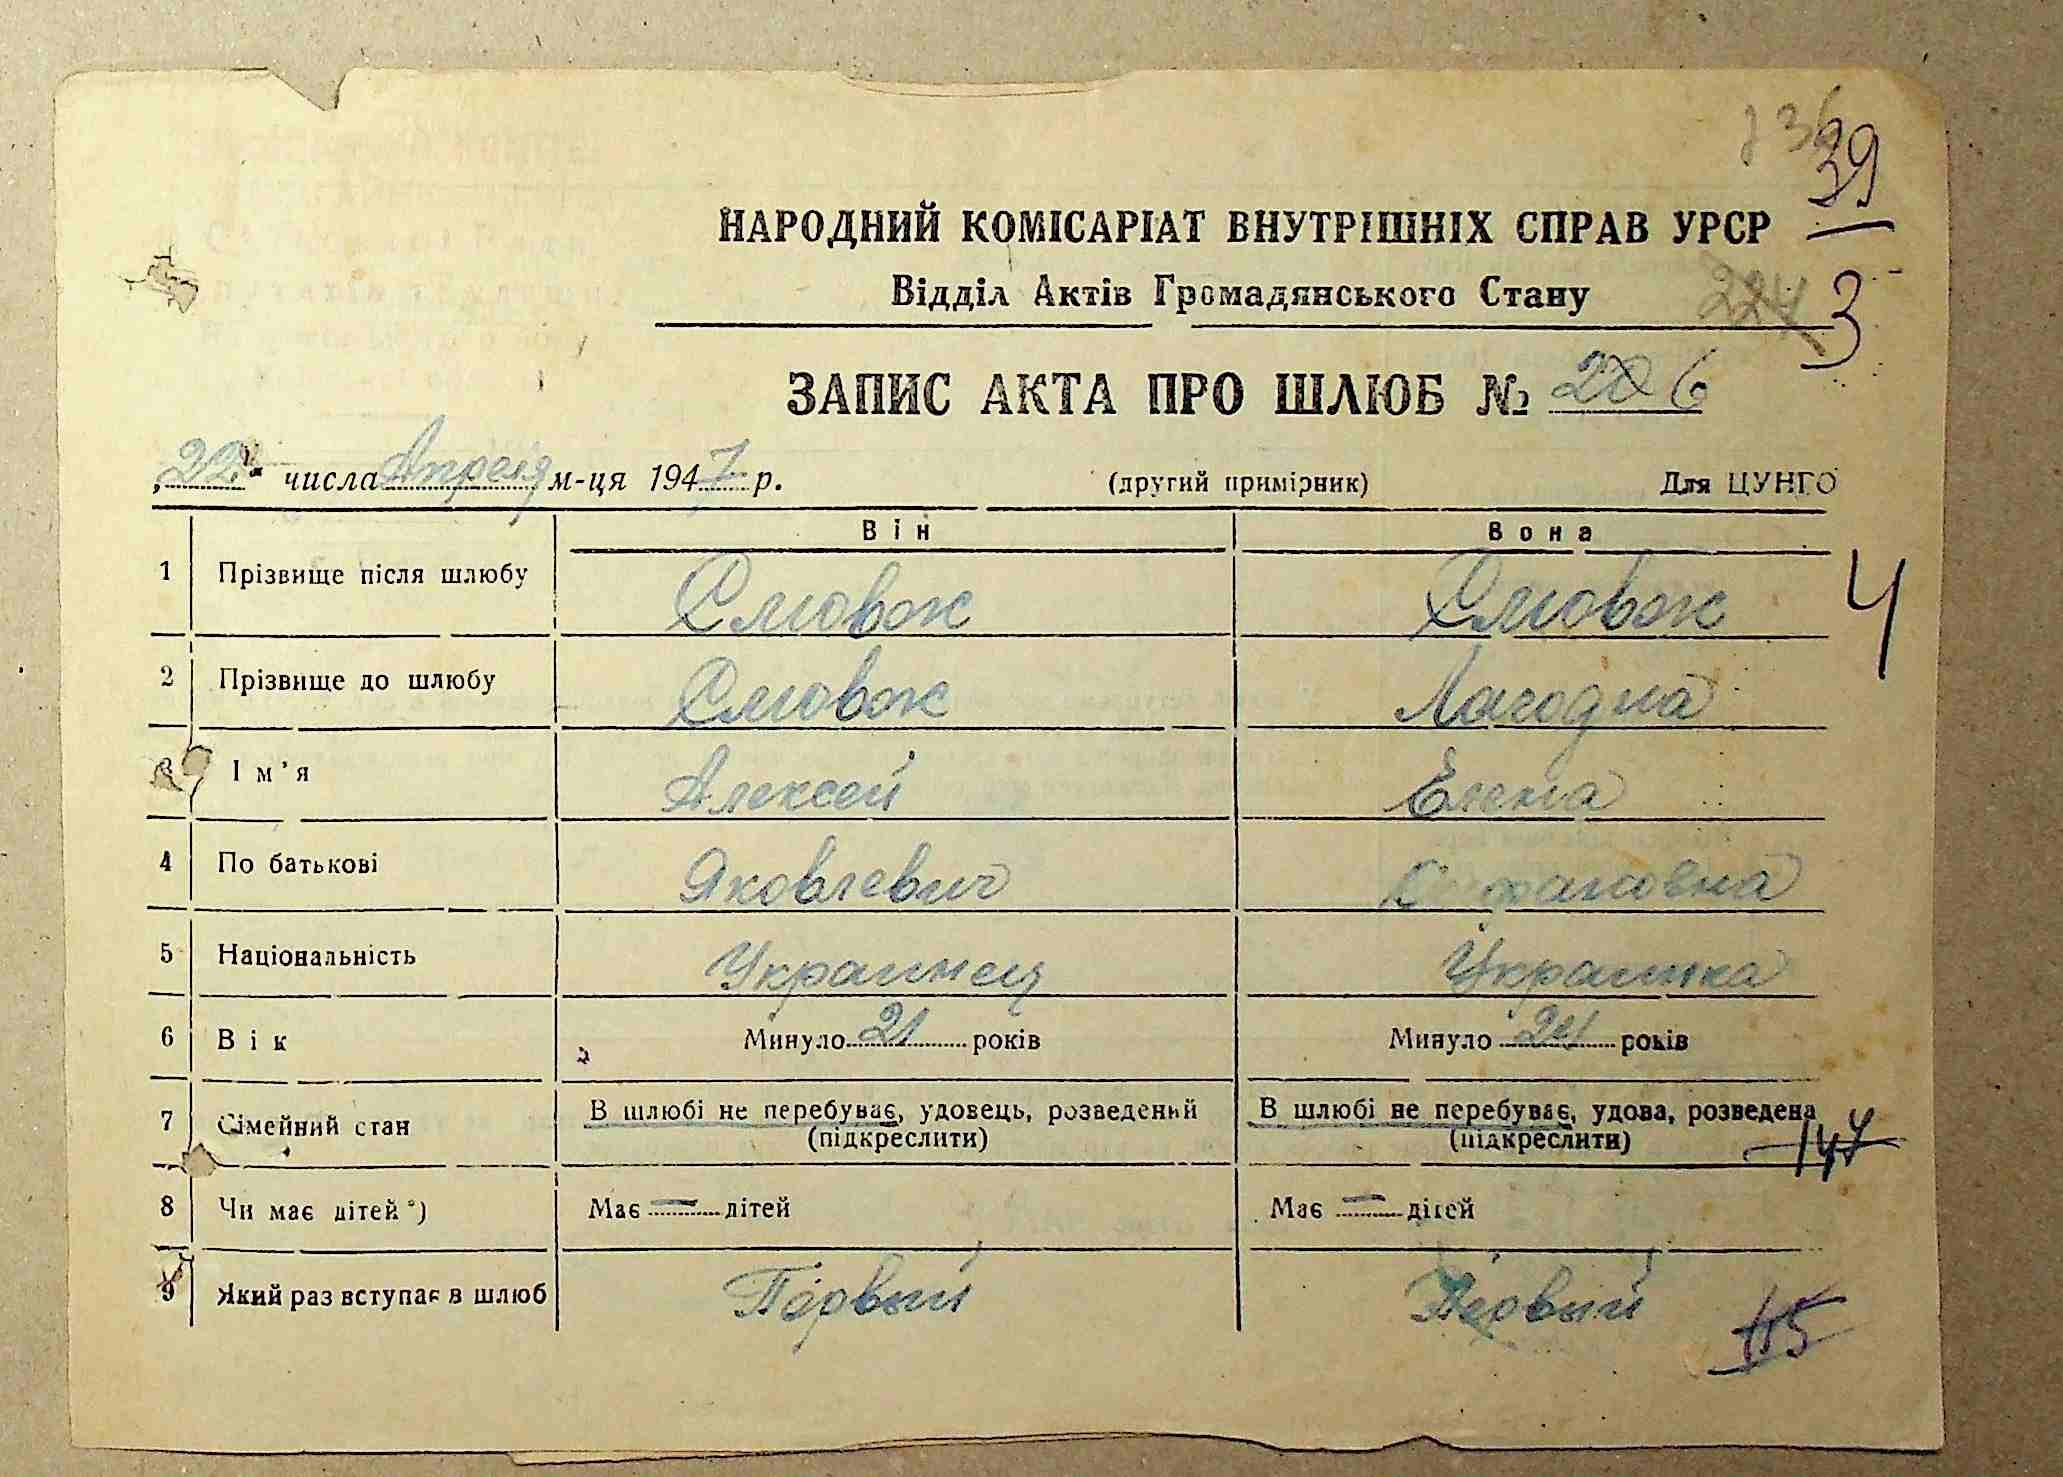 39
НАРОДНИЙ КОМІСАРІАТ ВНУТРІШНІХ СПРАВ УРСР
Відділ Актів Громадянського Стану
224 3
ЗАПИС АКТА ПРО ШЛЮБ № 6
„22“ числа Апреля м-ця 1947 р. (другий примірник) Для ЦУНГО
Він Вона
1 Прізвище після шлюбу
4
2 Прізвище до шлюбу Лагодна
3 Ім'я Алексей Елена
4 По батькові Яковлевич
5 Національність Украинец Украинка
6 Вік Минуло 21 років Минуло років
7 Сімейний стан В шлюбі не перебуває, удовець, розведений В шлюбі не перебуває, удова, розведена
(підкреслити) (підкреслити)
147
8 Чи має дітей*) Має — дітей Має — дітей
9 Який раз вступає в шлюб Первый Первый
115